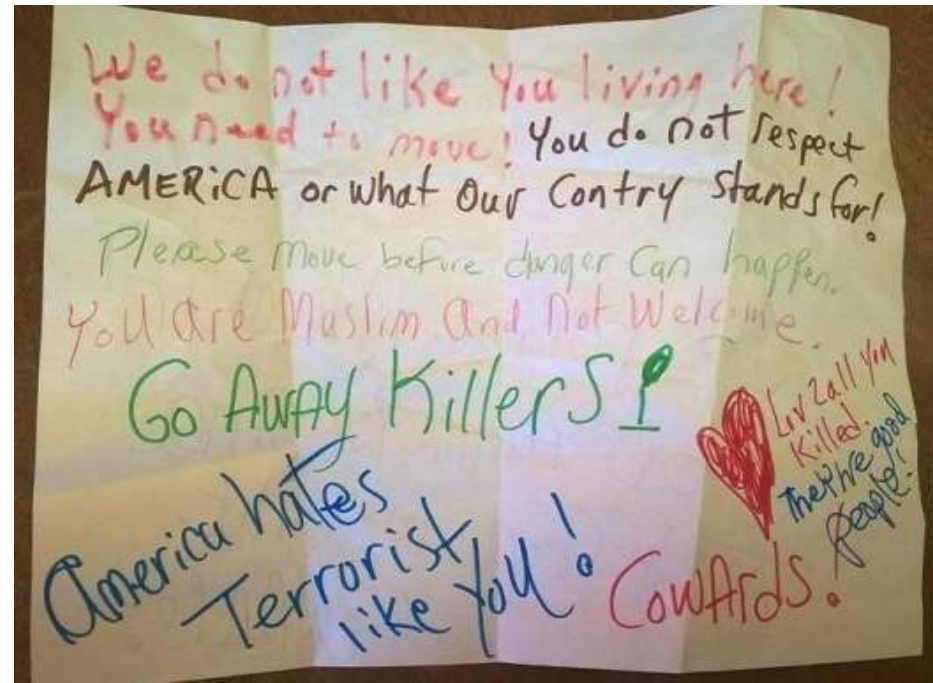 We do not like You living here!
You need to move! You do not respect
AMERiCA or what Our Contry Stands for!
Please Move before danger Can happen.
You are Muslim And Not Welcome.
Go AwAy KillerS!
Lov 2 all you
Killed.
They're good
people!
America hates
Terrorist
like You!
CowARds!